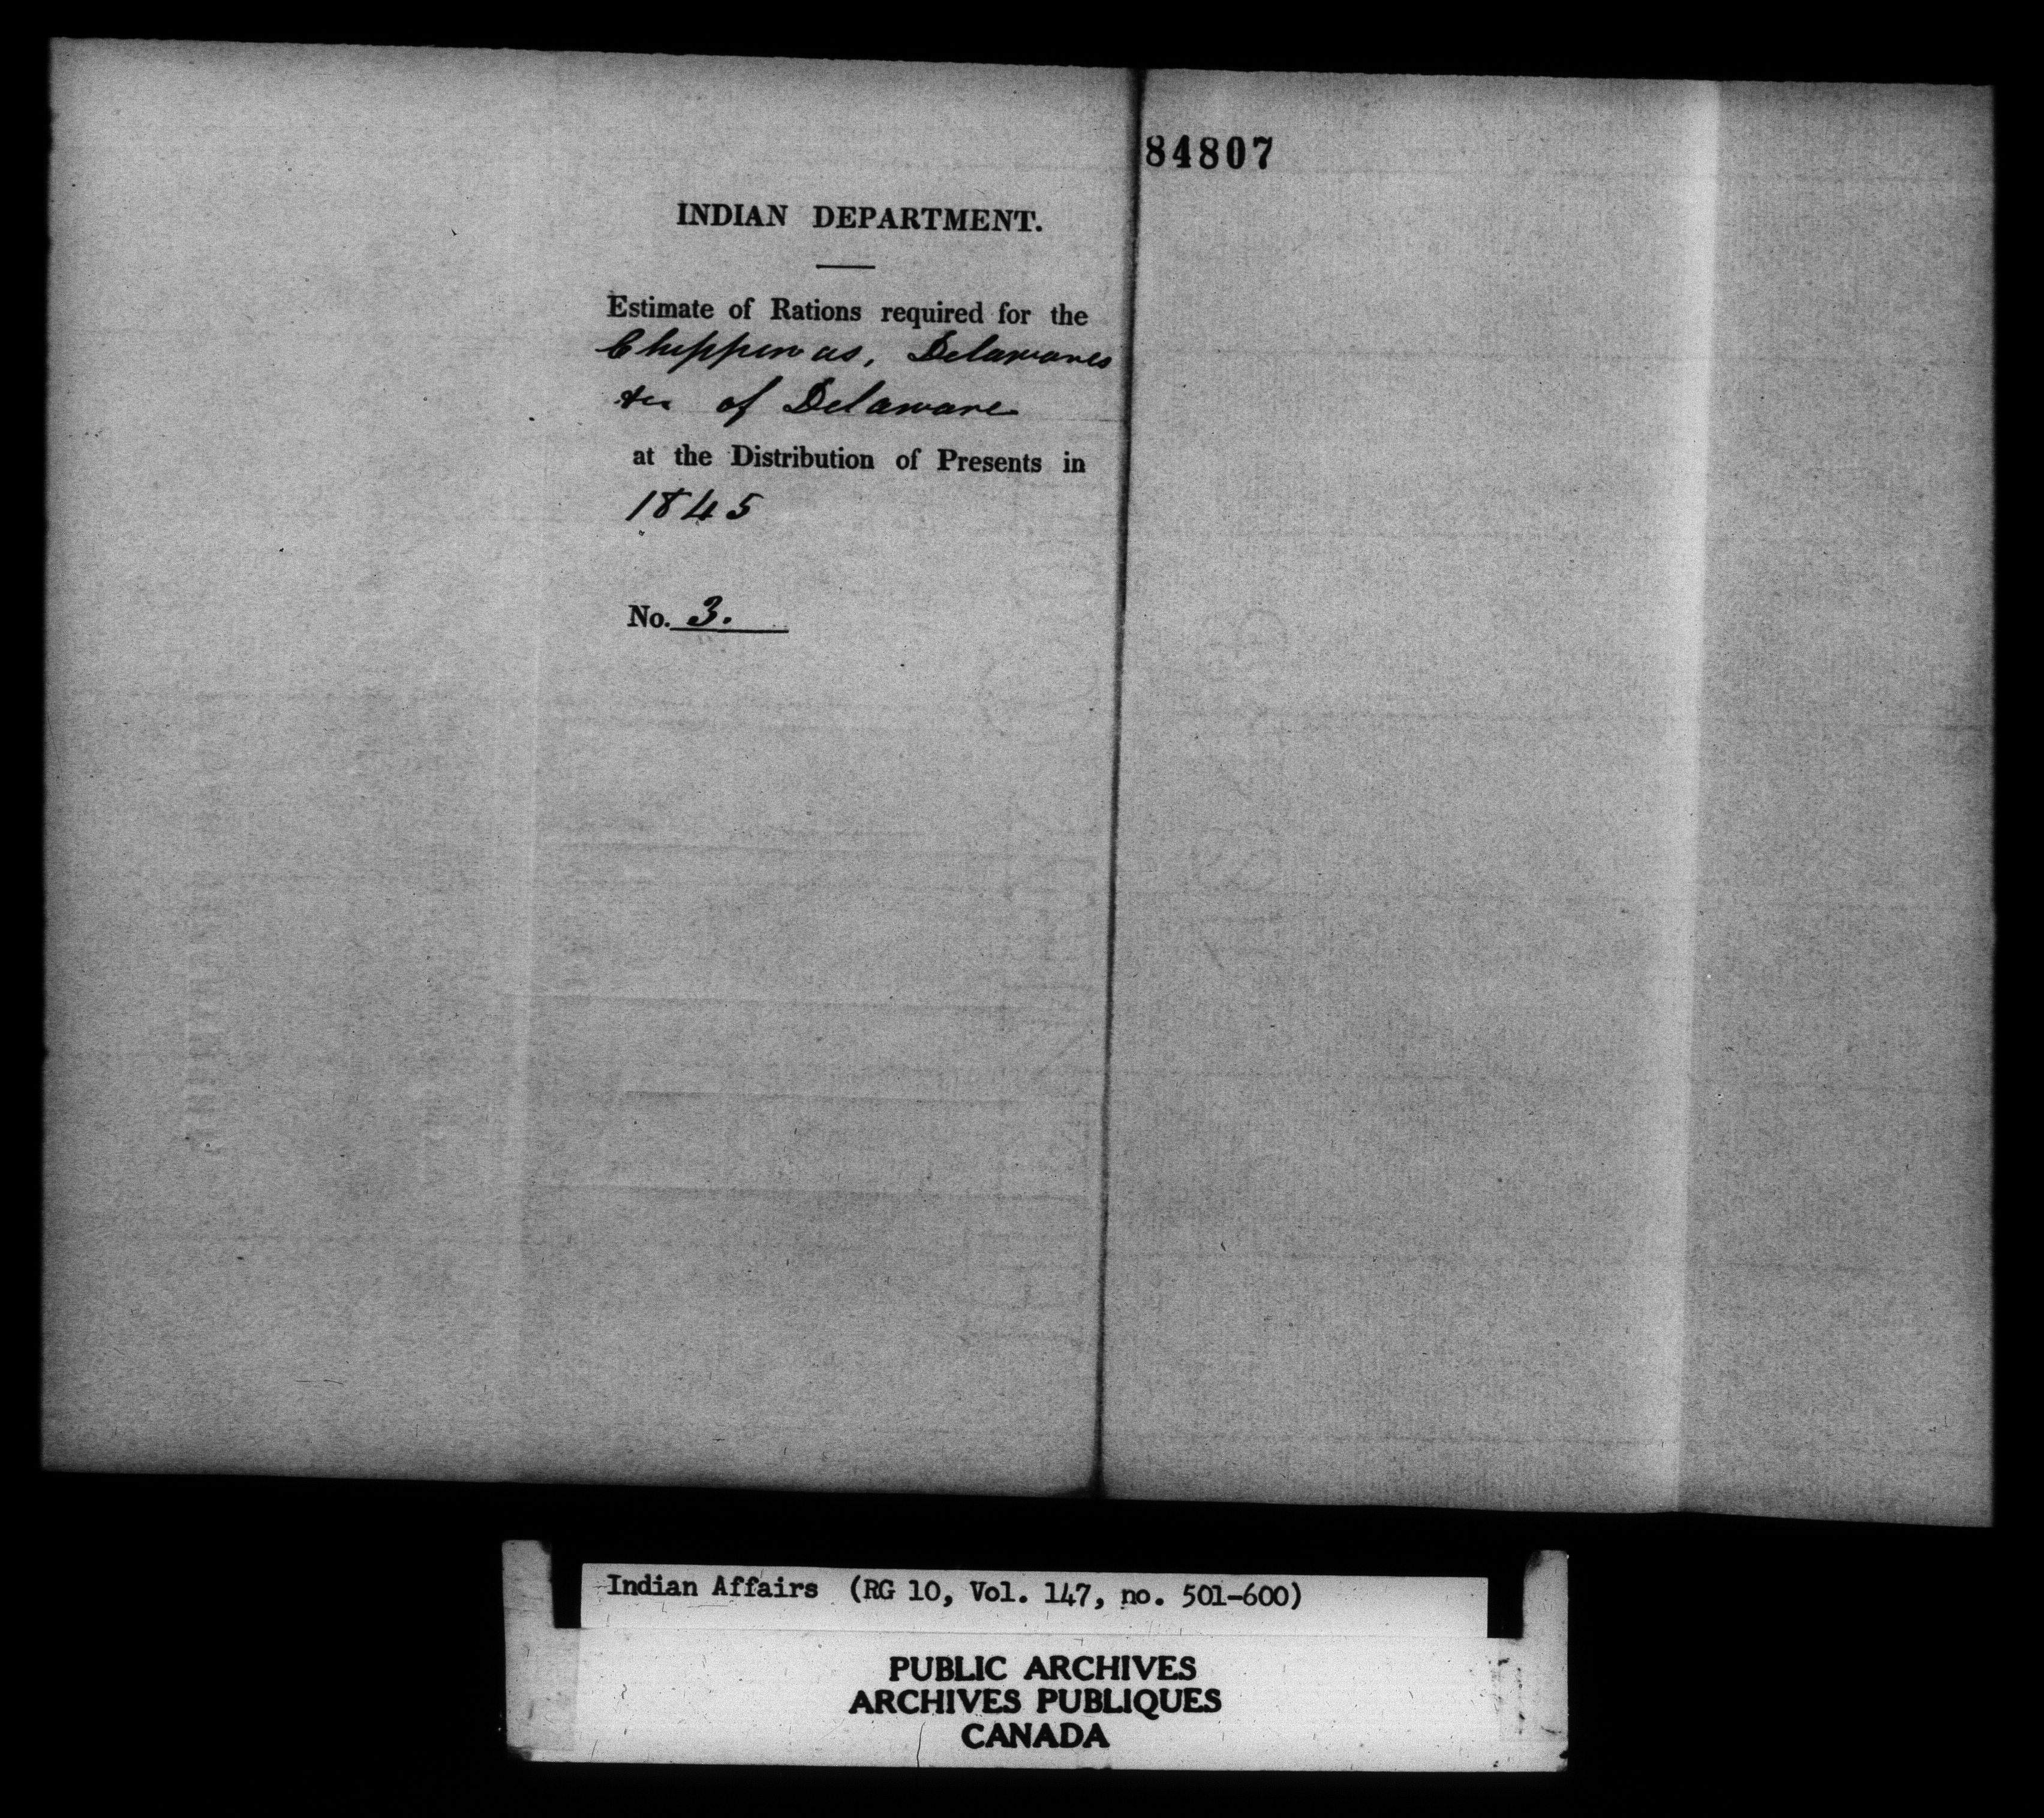 84807
INDIAN DEPARTMENT.
Estimate of Rations required for the
Chippewas, Delawares
&c of Delaware
at the Distribution of Presents in
1845
No. 3.
Indian Affairs (RG 10, Vol. 147, no. 501-600)
PUBLIC ARCHIVES
ARCHIVES PUBLIQUES
CANADA